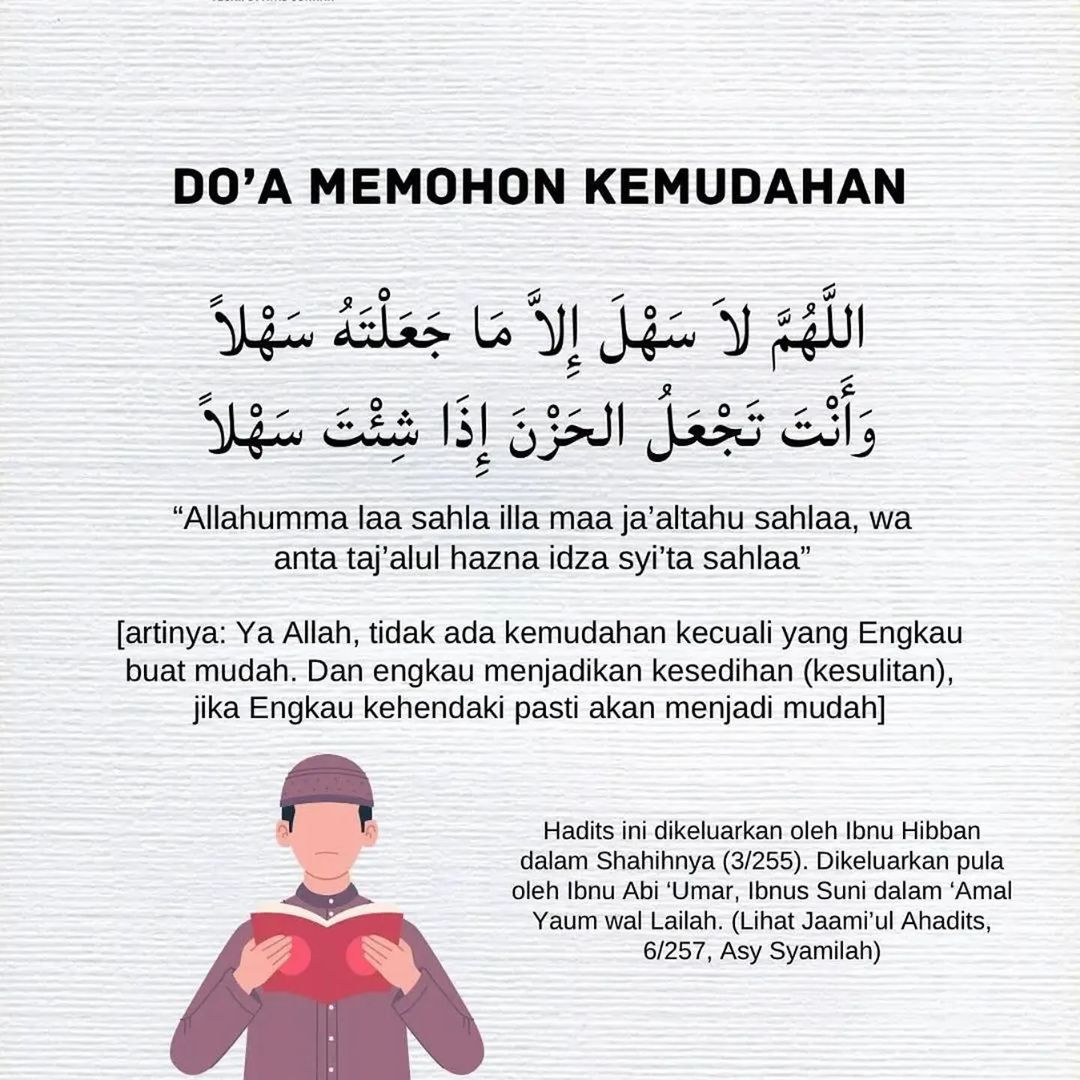 DO'A MEMOHON KEMUDAHAN
اللَّهُمَّ لاَ سَهْلَ إِلاَّ مَا جَعَلْتَهُ سَهْلاً
وَأَنْتَ تَجْعَلُ الحَزْنَ إِذَا شِئْتَ سَهْلاً
“Allahumma laa sahla illa maa ja’altahu sahlaa, wa
anta taj’alul hazna idza syi’ta sahlaa”
[artinya: Ya Allah, tidak ada kemudahan kecuali yang Engkau
buat mudah. Dan engkau menjadikan kesedihan (kesulitan),
jika Engkau kehendaki pasti akan menjadi mudah]
Hadits ini dikeluarkan oleh Ibnu Hibban
dalam Shahihnya (3/255). Dikeluarkan pula
oleh Ibnu Abi ‘Umar, Ibnus Suni dalam ‘Amal
Yaum wal Lailah. (Lihat Jaami’ul Ahadits,
6/257, Asy Syamilah)